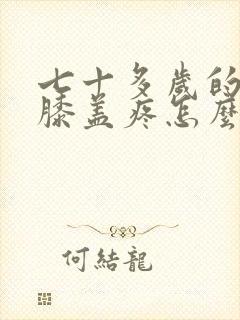 七十多歲的
膝盖疼怎麼
何結龍